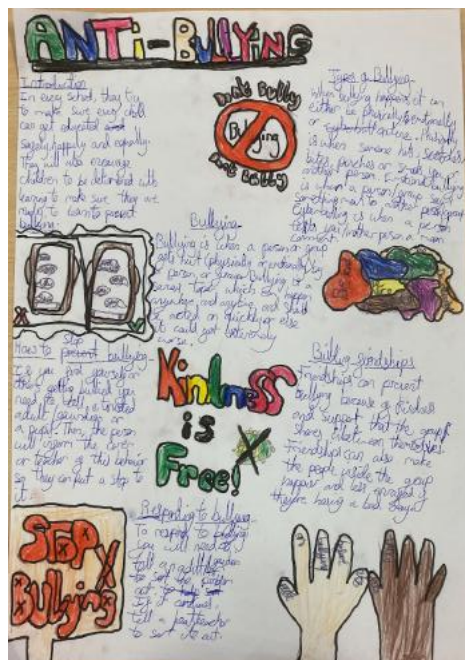 ANTI-BULLYING
Introduction
In every school, they try
to make sure every child
can get educated
safely, happily and equally.
This will also encourage
children to be determined with
learning to make sure they are
ready to learn to prevent
bullying.
Don't Bully
Bullying
Don't Bully
Types of Bullying
When bullying happens, it can
either be physically, emotionally
or
is when someone hits,
bites, punches or
another person. Emotional bullying
is when a person/group says
something mean to another person/group
Cyberbullying is when a person
texts you/another person a mean
comment.
Bullying
Bullying is when a person or group
gets hurt (physically or emotionally) by
a person or group. Bullying is a
serious topic which can happen
anywhere and anytime and should
be noted on quickly or else
it could get extremely
worse.
Stop
How to prevent bullying
If you find yourself or
others getting bullied you
need to tell a trusted
adult/guardian or
a pupil. Then, the person
will inform the carer
or teacher of this behavior
so they can put a stop to
it.
Kindness
is
Free!
Building friendships
Friendships can prevent
bullying because of kindness
and support that the group
shares between themselves.
Friendship can also make
the people inside the group
happier and less
they're having a bad day.
STOP
Bullying
Responding to bullying
To respond to bullying
you will need to
tell an adult/guardian
to sort the problem
out.
If it
tell a
to sort it out.